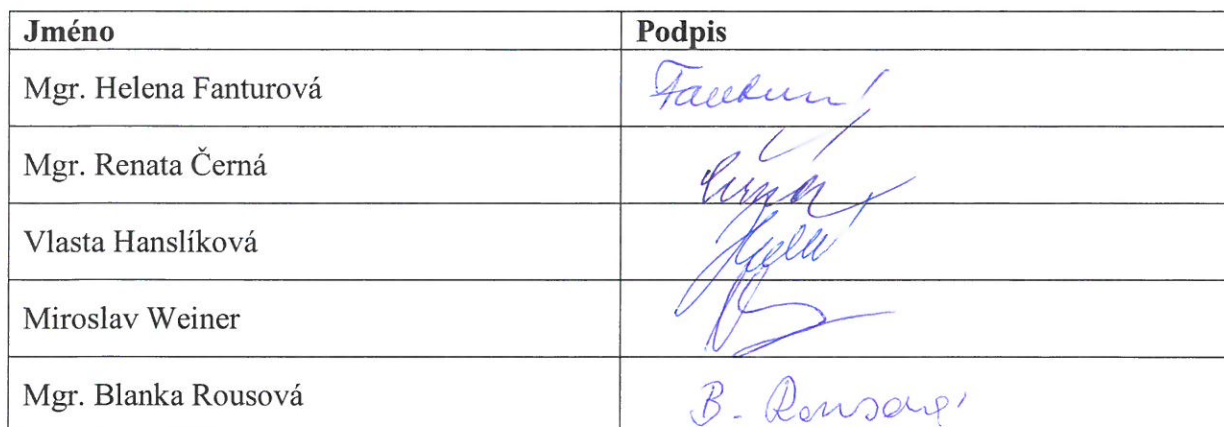 Jméno Podpis
Mgr. Helena Fanturová
Mgr. Renata Černá
Vlasta Hanslíková
Miroslav Weiner
Mgr. Blanka Rousová B. Rousová